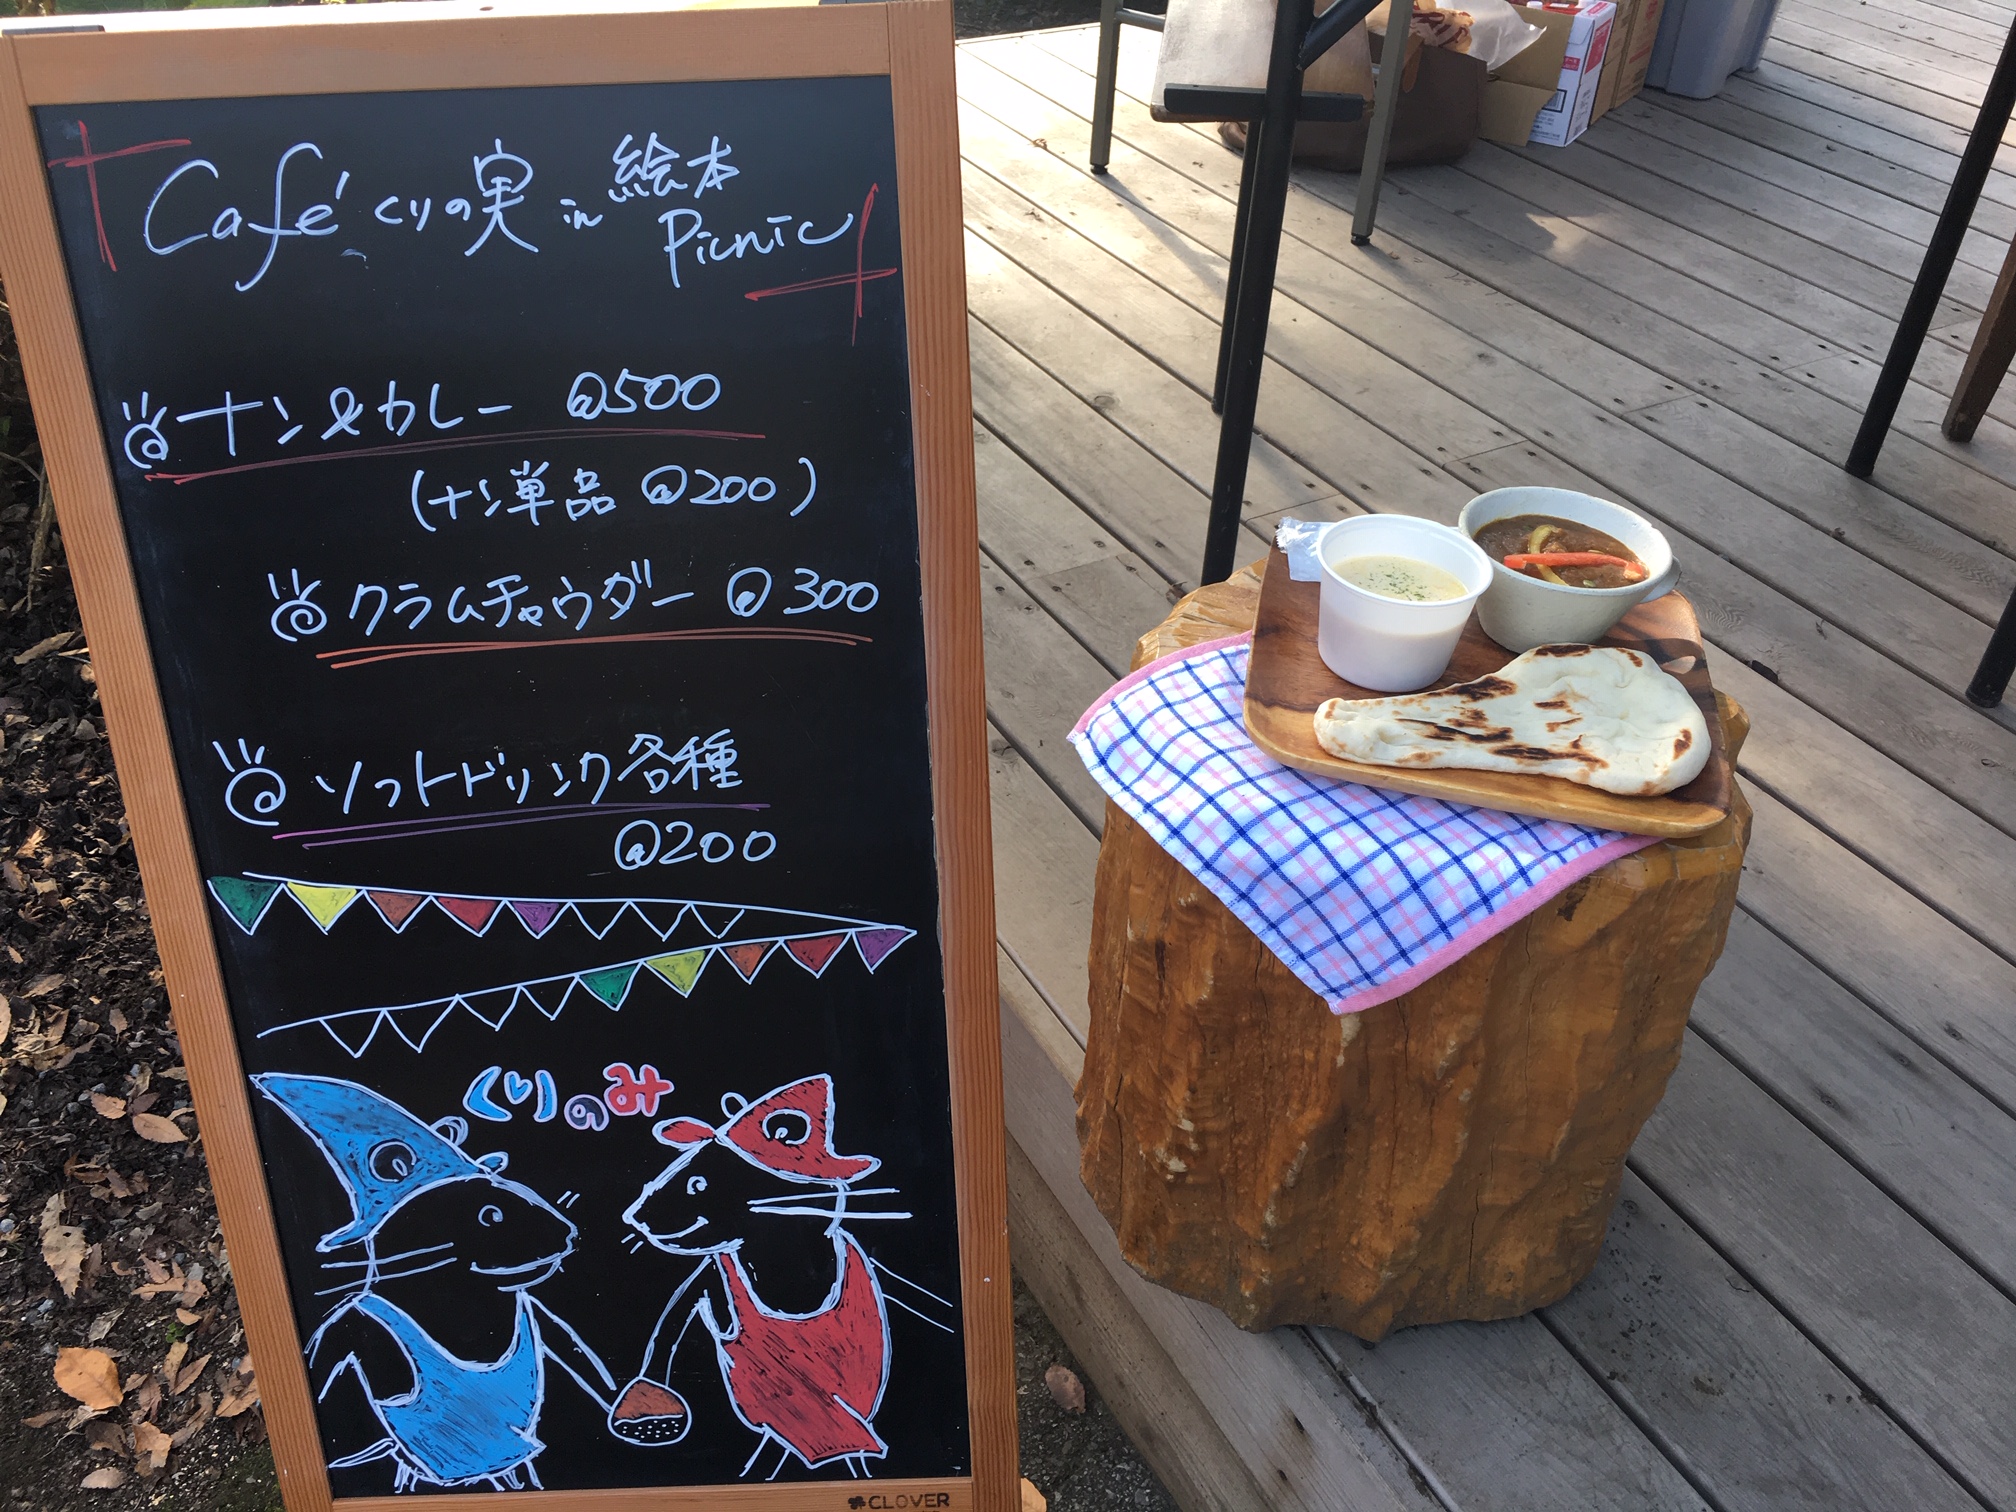 Café くりの実 in 絵本
Picnic
ナン&カレー @500
(ナン単品 @200)
クラムチャウダー @300
ソフトドリンク各種
@200
くりのみ
CLOVER